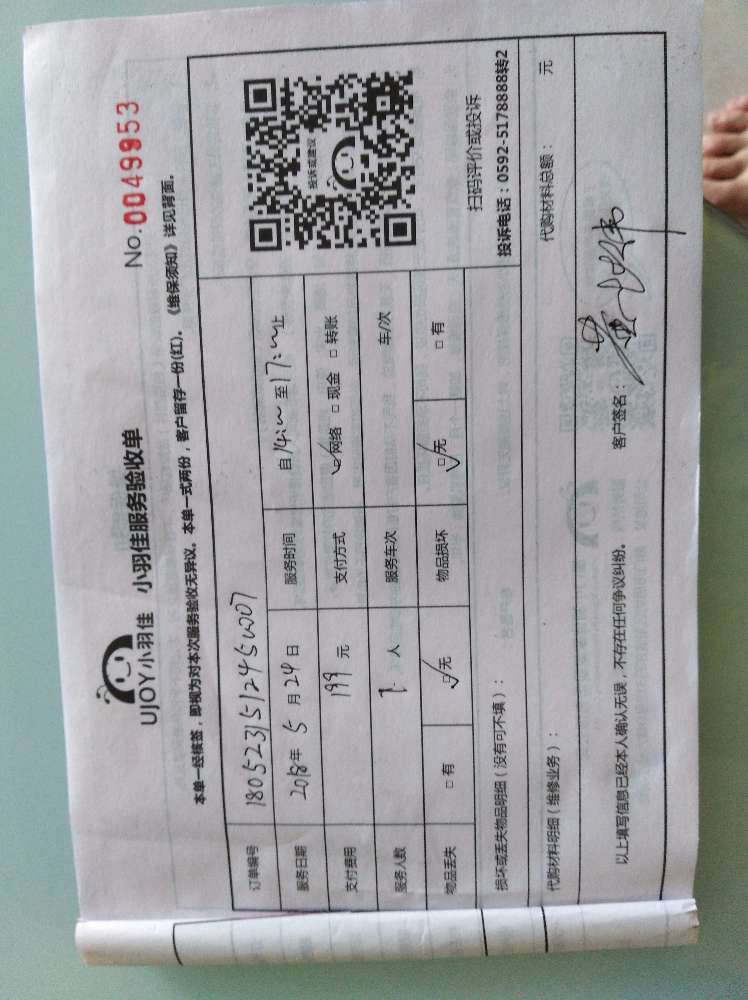 UJOY小羽佳 小羽佳服务验收单
No.0049953
本单一经核签，即视为对本次服务验收无异议。本单一式两份，客户留存一份(红)。《维保须知》详见背面。
订单编号
服务日期 2018年 5 月 24 日 服务时间 自 至 止
支付费用 199 元 支付方式 ☑网络 □现金 □转账
服务人数 人 服务车次 车/次
物品丢失 □有 ☑无 物品损坏 ☑无 □有
投诉或建议
扫码评价或投诉
投诉电话：0592-5178888转2
损坏或丢失物品明细（没有可不填）：
代购材料明细（维修业务）： 代购材料总额： 元
以上填写信息已经本人确认无误，不存在任何争议纠纷。 客户签名：